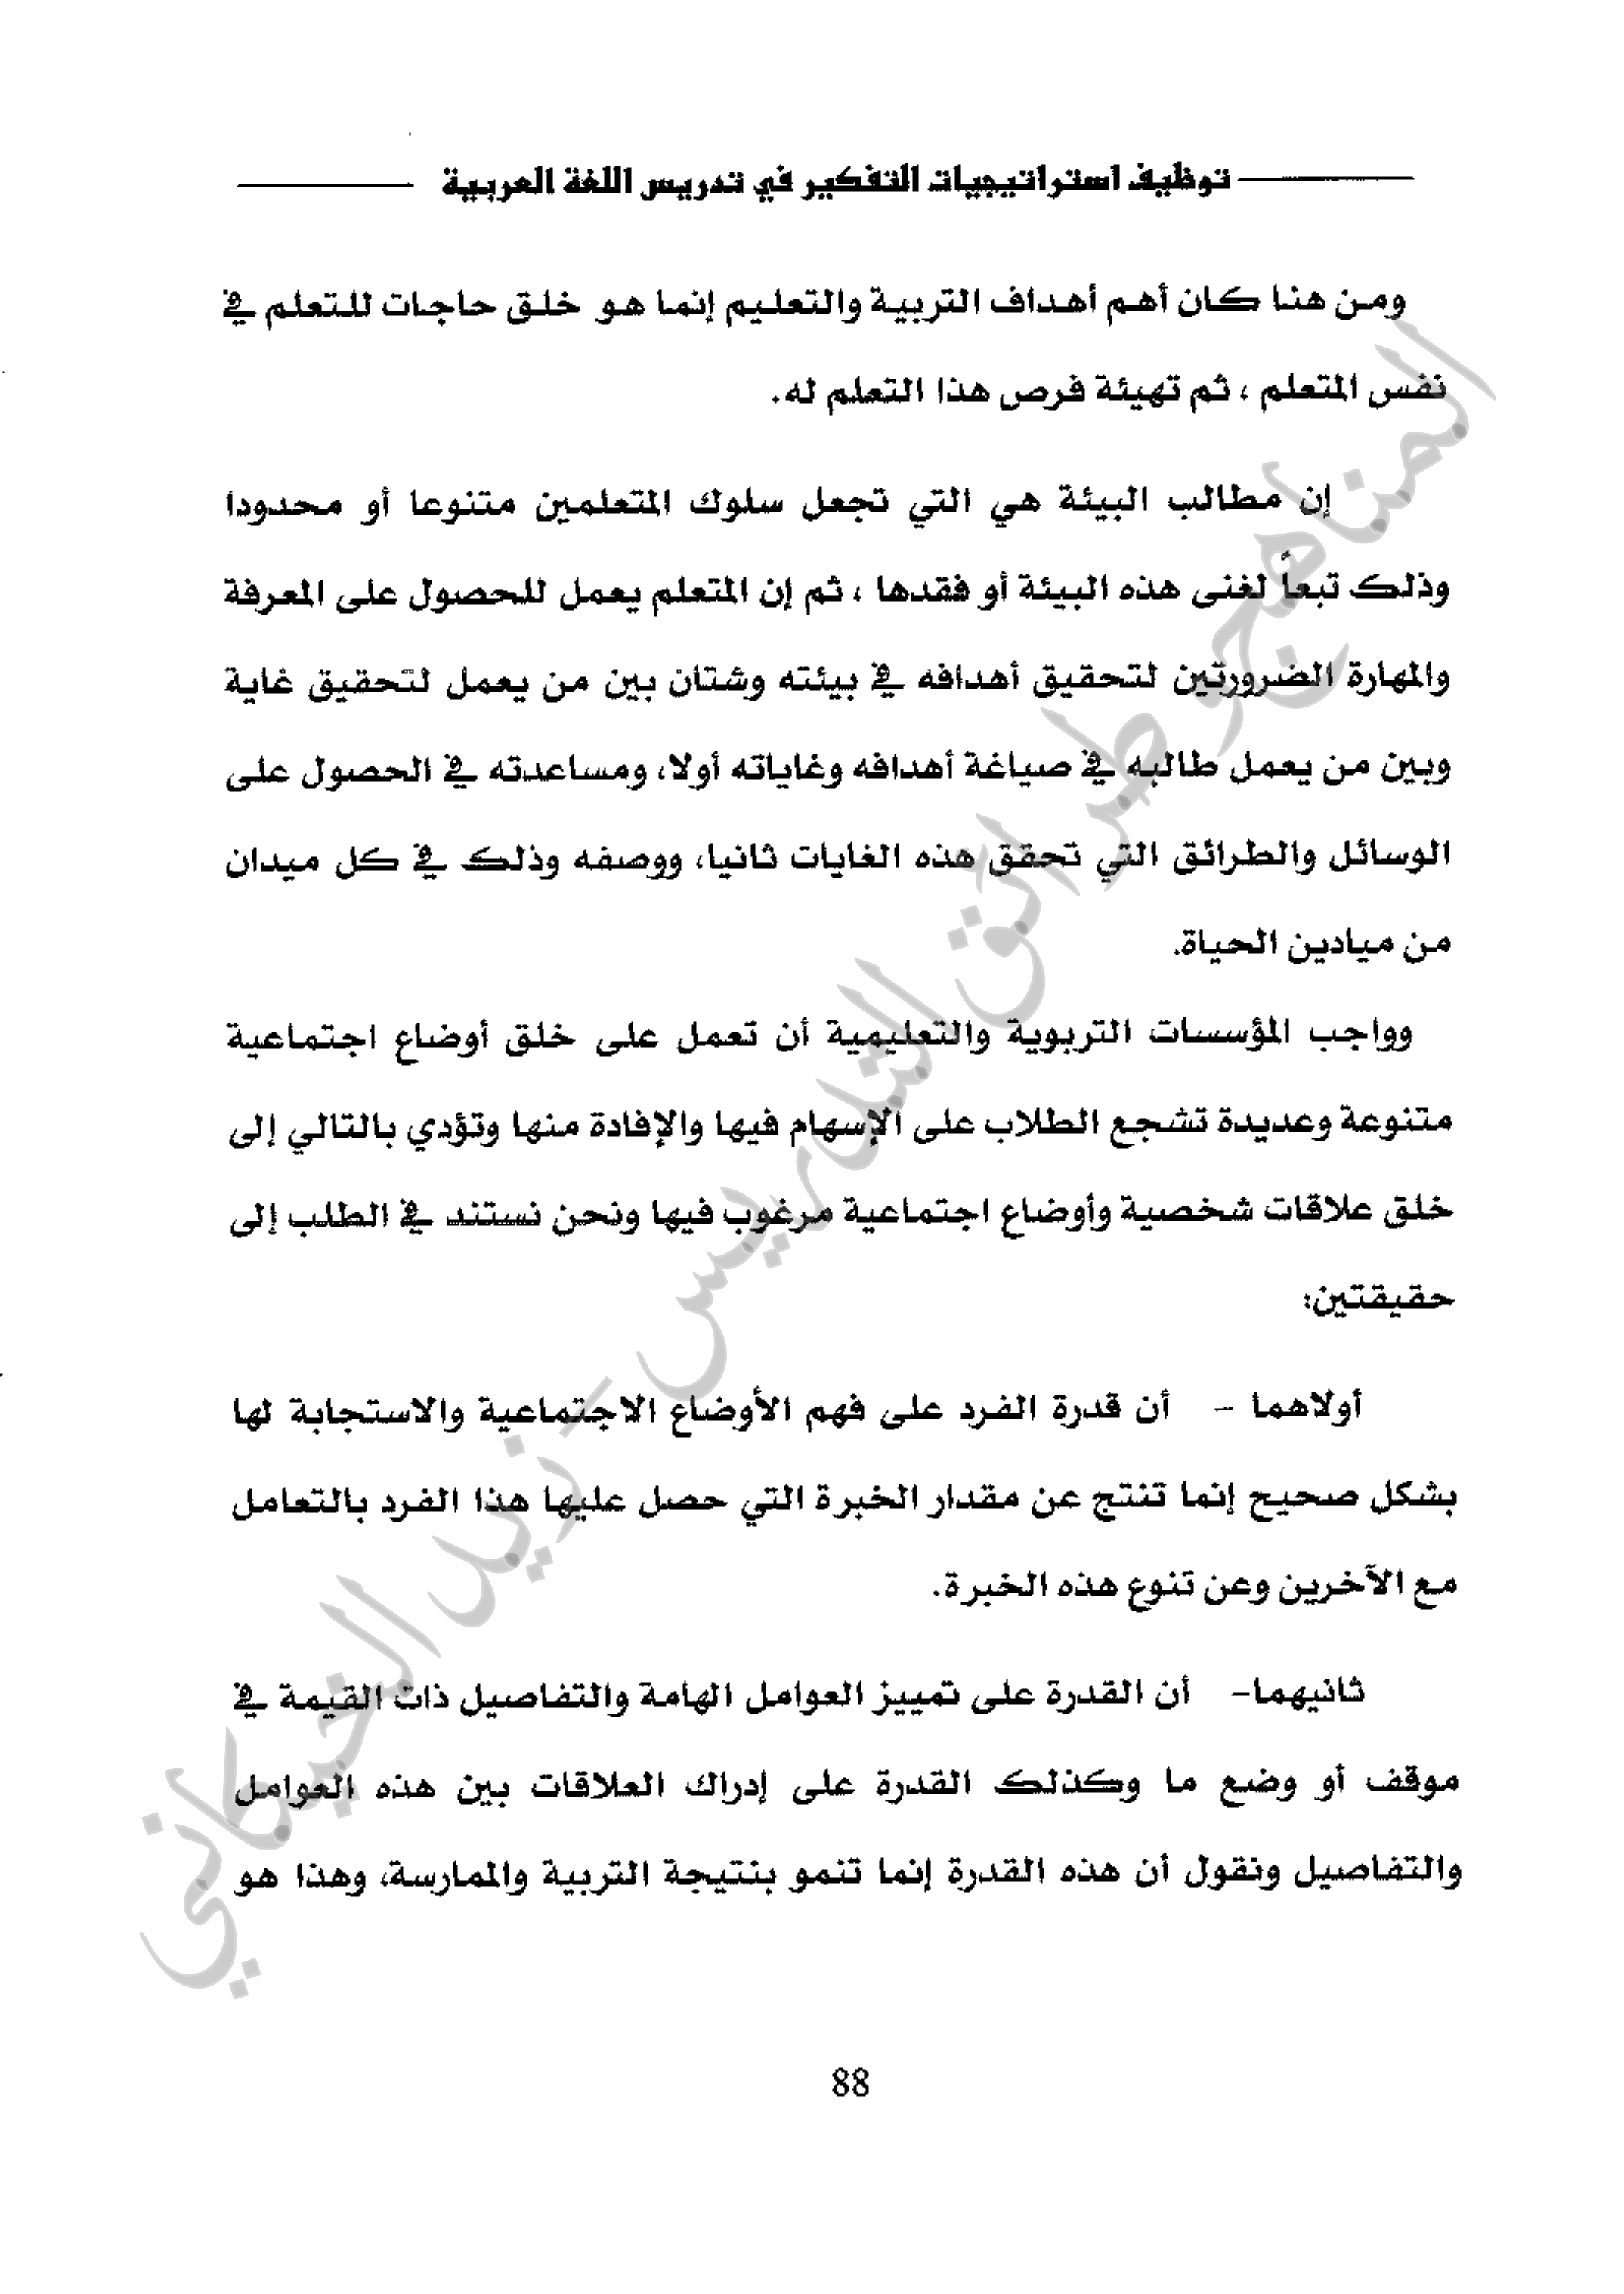 توظيف استراتيجيات التفكير في تدريس اللغة العربية
ومن هنا كان أهم أهداف التربية والتعليم إنما هو خلق حاجات للتعلم في
نفس المتعلم ، ثم تهيئة فرص هذا التعلم له.
إن مطالب البيئة هي التي تجعل سلوك المتعلمين متنوعا أو محدودا
وذلك تبعاً لغنى هذه البيئة أو فقدها ، ثم إن المتعلم يعمل للحصول على المعرفة
والمهارة الضرورتين لتحقيق أهدافه في بيئته وشتان بين من يعمل لتحقيق غاية
وبين من يعمل طالبه في صياغة أهدافه وغاياته أولا، ومساعدته في الحصول على
الوسائل والطرائق التي تحقق هذه الغايات ثانيا، ووصفه وذلك في كل ميدان
من ميادين الحياة.
وواجب المؤسسات التربوية والتعليمية أن تعمل على خلق أوضاع اجتماعية
متنوعة وعديدة تشجع الطلاب على الإسهام فيها والإفادة منها وتؤدي بالتالي إلى
خلق علاقات شخصية وأوضاع اجتماعية مرغوب فيها ونحن نستند في الطلب إلى
حقيقتين:
أولاهما - أن قدرة الفرد على فهم الأوضاع الاجتماعية والاستجابة لها
بشكل صحيح إنما تنتج عن مقدار الخبرة التي حصل عليها هذا الفرد بالتعامل
مع الآخرين وعن تنوع هذه الخبرة.
ثانيهما- أن القدرة على تمييز العوامل الهامة والتفاصيل ذات القيمة في
موقف أو وضع ما وكذلك القدرة على إدراك العلاقات بين هذه العوامل
والتفاصيل ونقول أن هذه القدرة إنما تنمو بنتيجة التربية والممارسة، وهذا هو
88
المناهج وطرائق التدريس - زيد الخيكاني